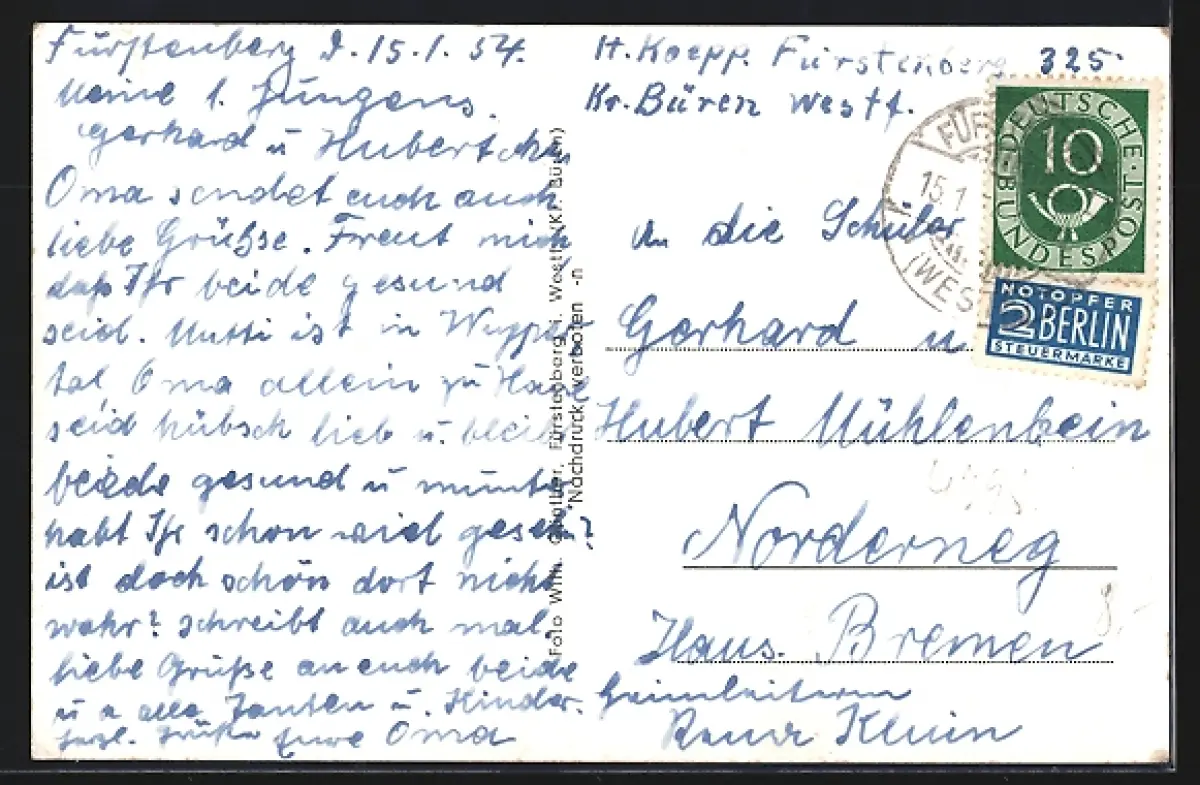 Fürstenberg d. 15.1.54.
Meine l. Jungens.
Gerhard u Hubertchen
Oma sendet euch auch
liebe Grühse. Freut mich
daß Ihr beide gesund
seid. Mutti ist in Wupper
tal, Oma allein zu Hause
seid hübsch lieb u. bleibt
beide gesund u munter
habt Ihr schon viel gesehn?
ist doch schön dort nicht
wahr? schreibt auch mal.
liebe Grüße an euch beide
u a alle Tanten u. Kinder.
herzl. Grüße Eure Oma
Foto Wilh. Fürstenberg i. Westf. (Kr. Büren)
Nachdruck verboten -n
H. Koepp. Fürstenberg
Kr. Büren Westf.
325
An die Schüler
Gerhard u
Hubert Mühlenbein
Norderney
Haus. Bremen
Heimleiterin
Klein
8,-
FÜR
15.1
(WEST
DEUTSCHE BUNDESPOST
10
NOTOPFER
2 BERLIN
STEUERMARKE